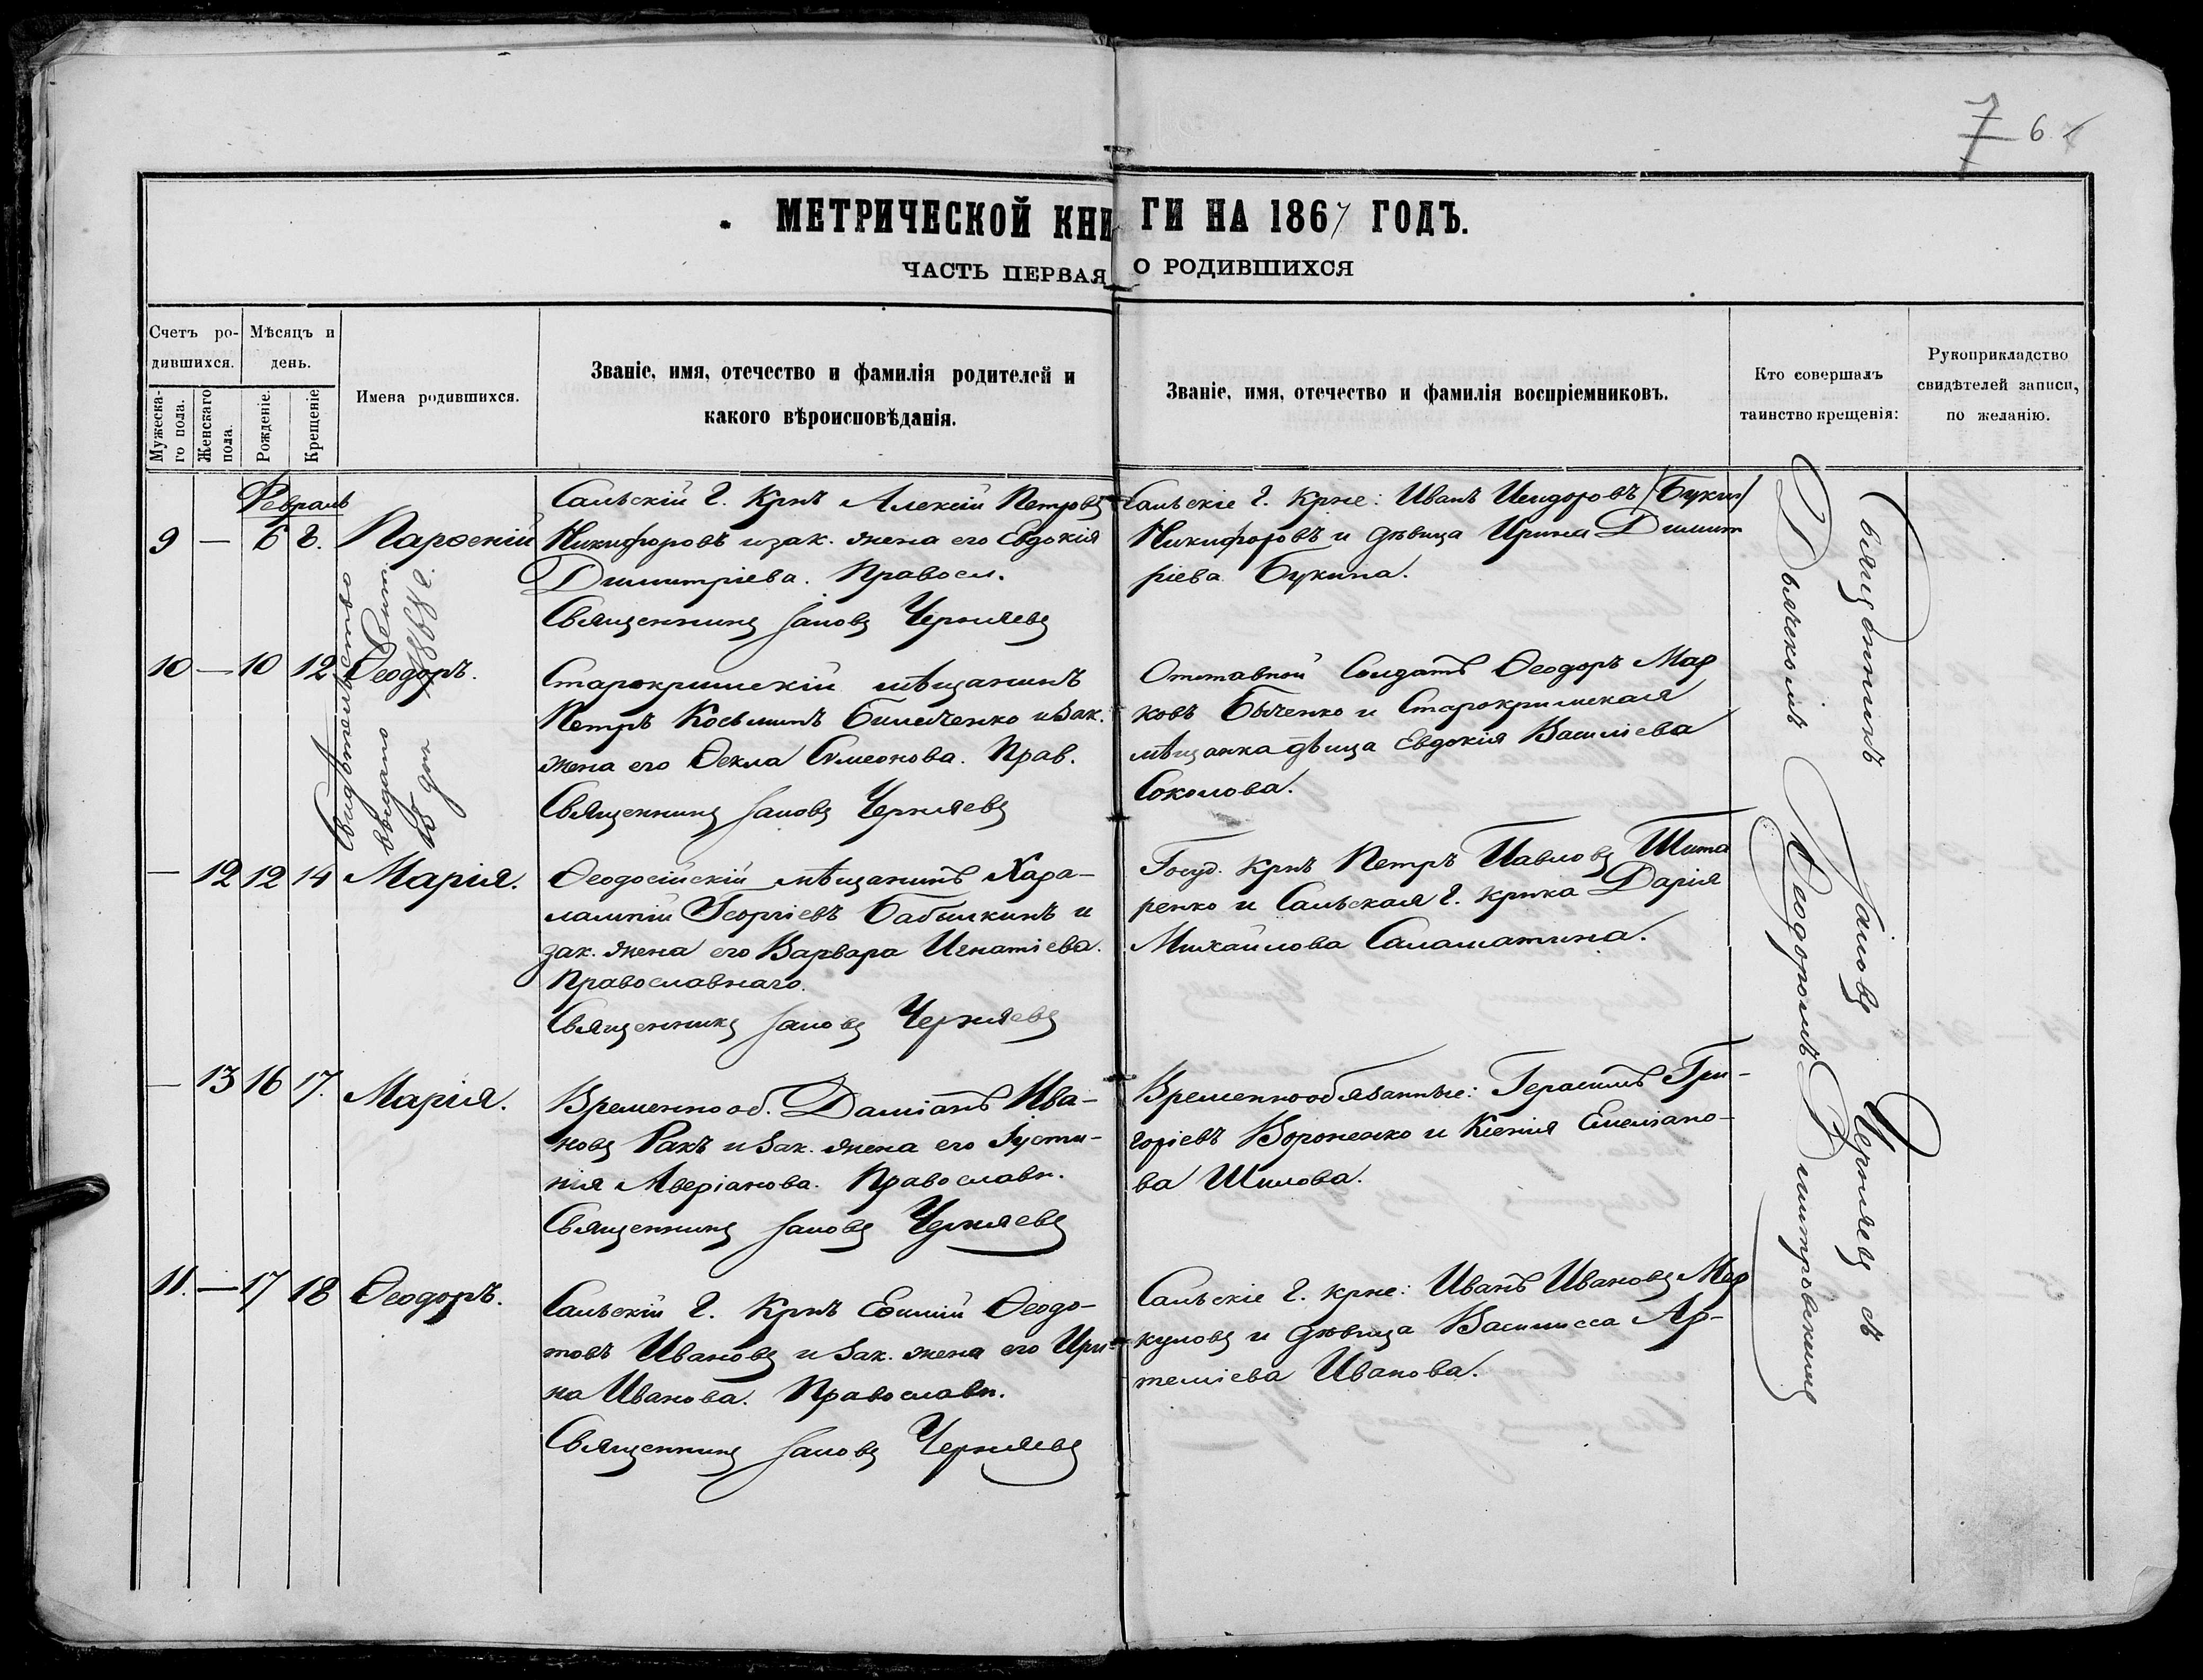 7 6
МЕТРИЧЕСКОЙ КНИГИ НА 1867 ГОДЪ.
ЧАСТЬ ПЕРВАЯ О РОДИВШИХСЯ
Счетъ ро-
дившихся.
Мужеска-
го пола.
Женскаго
пола.
Мѣсяцъ и
день.
Рожденіе.
Крещеніе
Имена родившихся.
Званіе, имя, отечество и фамилія родителей и
какого вѣроисповѣданія.
Званіе, имя, отечество и фамилія воспріемниковъ.
Кто совершалъ
таинство крещенія:
Рукоприкладство
свидѣтелей записи,
по желанію.
Февраль
9 — 6 8. Парѳеній
Сальскій Г. Крнъ Алексій Петровъ
Никифоровъ и зак. жена его Евдокія
Димитріева. Правосл.
Священникъ Іаковъ Черняевъ
Сальскіе Г. Крне: Иванъ Исидоровъ /Букин/
Никифоровъ и дѣвица Ирина Димит
ріева Букина.
10 — 10 12 Ѳеодоръ.
Свидѣтельство
выдано Сент.
Старокримскій мѣщанинъ
Петръ Косьминъ Билеченко и зак.
жена его Ѳекла Симеонова. Прав.
Священникъ Іаковъ Черняевъ
Отставной Солдатъ Ѳеодоръ Мар
ковъ Быченко и Старокримская
мѣщанка дѣвица Евдокія Василіева
Соколова.
— 12 12 14 Марія.
Ѳеодосійскій мѣщанинъ Хара-
лампій Георгіевъ Бабилкинъ и
зак. жена его Варвара Игнатіева.
Православнаго.
Священникъ Іаковъ Черняевъ
Госуд. Крнъ Петръ Павловъ Шита
ренко и Сальская Г. крнка Дарія
Михайлова Саламатина.
— 13 16 17. Марія.
Временнооб. Даміанъ Ива-
новъ Ракъ и зак. жена его Іусти-
нія Аверіанова. Православн.
Священникъ Іаковъ Черняевъ
Временнообязанные: Герасимъ Гри-
горіевъ Вороненко и Ксенія Емеліано-
ва Шилова.
11. — 17 18 Ѳеодоръ.
Сальскій Г. Крнъ Евѳимій Ѳеодо-
товъ Ивановъ и зак. жена его Ири-
на Иванова. Православн.
Священникъ Іаковъ Черняевъ
Сальскіе Г. крне: Иванъ Ивановъ Мер
куловъ и дѣвица Василисса Ар-
теміева Иванова.
Священникъ Іаковъ Черняевъ съ
Дьячекомъ Ѳеодоромъ Димитровскимъ